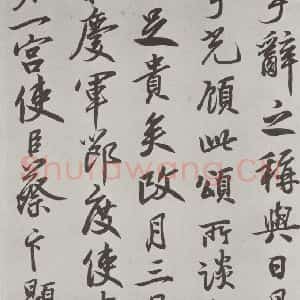 辭之稱與日
光頋此頌所談
足貴矣政月三日
慶軍節度使
一宮使臣蔡卞題
Shufawang.cn